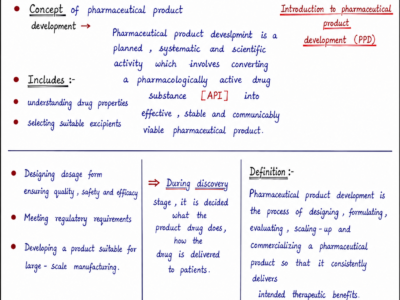 Concept of pharmaceutical product
development →
Pharmaceutical product deveslpmint is a
planned , systematic and scientific
activity which involves converting
a pharmacologically active drug
substance [API] into
effective , stable and communicably
viable pharmaceutical product.
Introduction to pharmaceutical
product
development (PPD)
Includes :-
understanding drug properties
selecting suitable excipients
Designing dosage form
ensuring quality , safety and efficacy
Meeting regulatory requirements
Developing a product suitable for
large - scale manufacturing.
⇒ During discovery
stage , it is decided
what the
product drug does,
how the
drug is delivered
to patients.
Definition :-
Pharmaceutical product development is
the process of designing , formulating,
evaluating , scaling-up and
commercializing a pharmaceutical
product so that it consistently
delivers
intended therapeutic benefits.